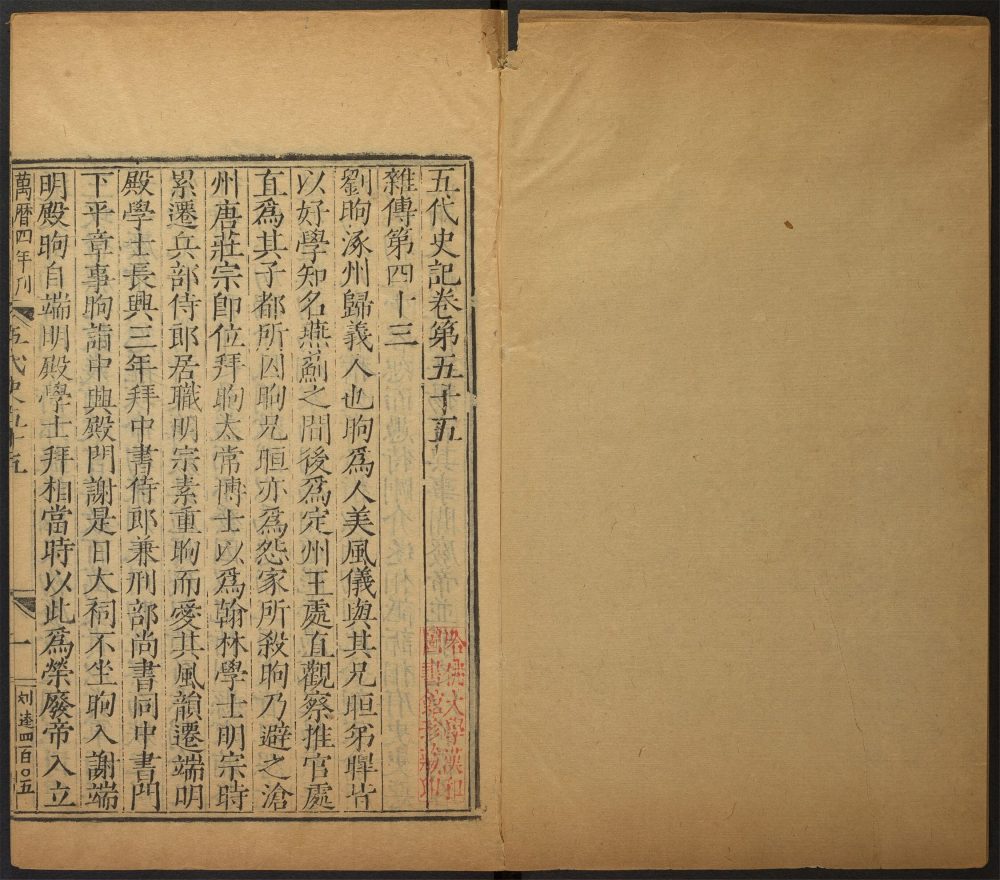 五代史記卷第五十五
雜傳第四十三
劉昫涿州歸義人也昫為人美風儀與其兄暄弟暭皆
以好學知名燕薊之間後為定州王處直觀察推官處
直為其子都所囚昫兄暄亦為怨家所殺昫乃避之滄
州唐莊宗即位拜昫太常博士以為翰林學士明宗時
累遷兵部侍郎居職明宗素重昫而愛其風韻遷端明
殿學士長興三年拜中書侍郎兼刑部尚書同中書門
下平章事昫詣中興殿門謝是日大祠不坐昫入謝端
明殿昫自端明殿學士拜相當時以此為榮廢帝入立
萬曆四年刊
五代史五十五
一
刘逵四百〇五
哈佛大學漢和
圖書館珍藏印